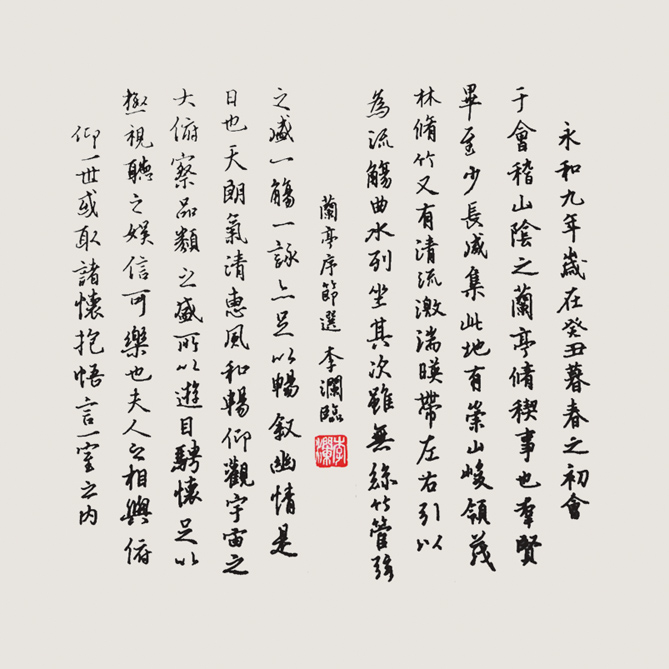 永和九年歲在癸丑暮春之初會
于會稽山陰之蘭亭脩稧事也羣賢
畢至少長咸集此地有崇山峻領茂
林脩竹又有清流激湍暎帶左右引以
為流觴曲水列坐其次雖無絲竹管弦
蘭亭序節選 李瀾臨
李瀾
之盛一觴一詠亦足以暢叙幽情是
日也天朗氣清惠風和暢仰觀宇宙之
大俯察品類之盛所以遊目騁懷足以
極視聽之娛信可樂也夫人之相與俯
仰一世或取諸懷抱悟言一室之内